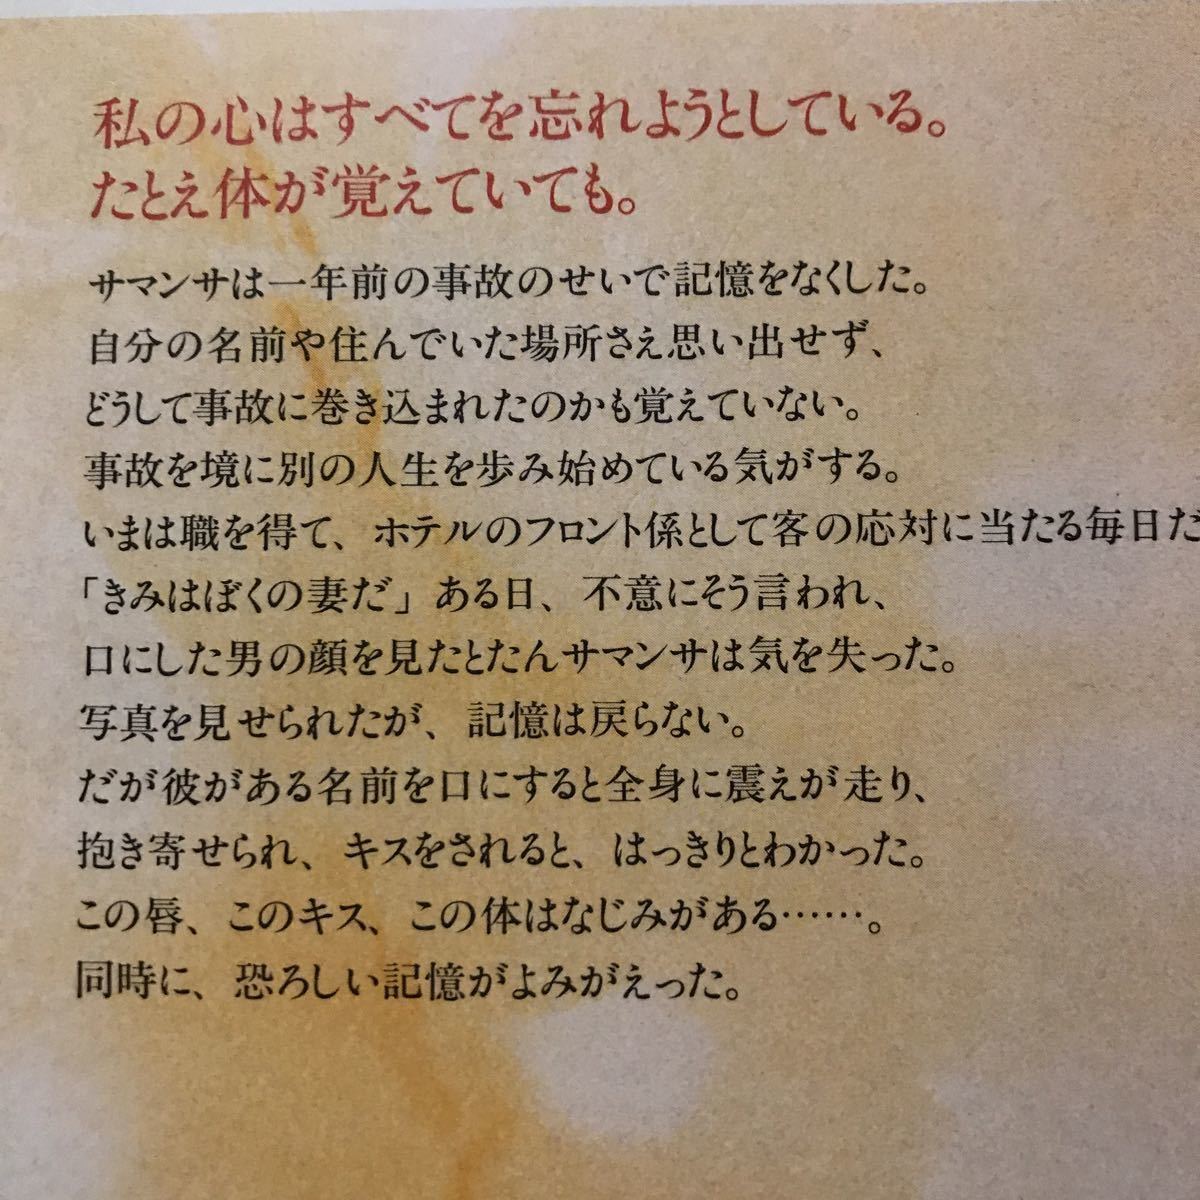 私の心はすべてを忘れようとしている。
たとえ体が覚えていても。
サマンサは一年前の事故のせいで記憶をなくした。
自分の名前や住んでいた場所さえ思い出せず、
どうして事故に巻き込まれたのかも覚えていない。
事故を境に別の人生を歩み始めている気がする。
いまは職を得て、ホテルのフロント係として客の応対に当たる毎日だ
「きみはぼくの妻だ」ある日、不意にそう言われ、
口にした男の顔を見たとたんサマンサは気を失った。
写真を見せられたが、記憶は戻らない。
だが彼がある名前を口にすると全身に震えが走り、
抱き寄せられ、キスをされると、はっきりとわかった。
この唇、このキス、この体はなじみがある……。
同時に、恐ろしい記憶がよみがえった。